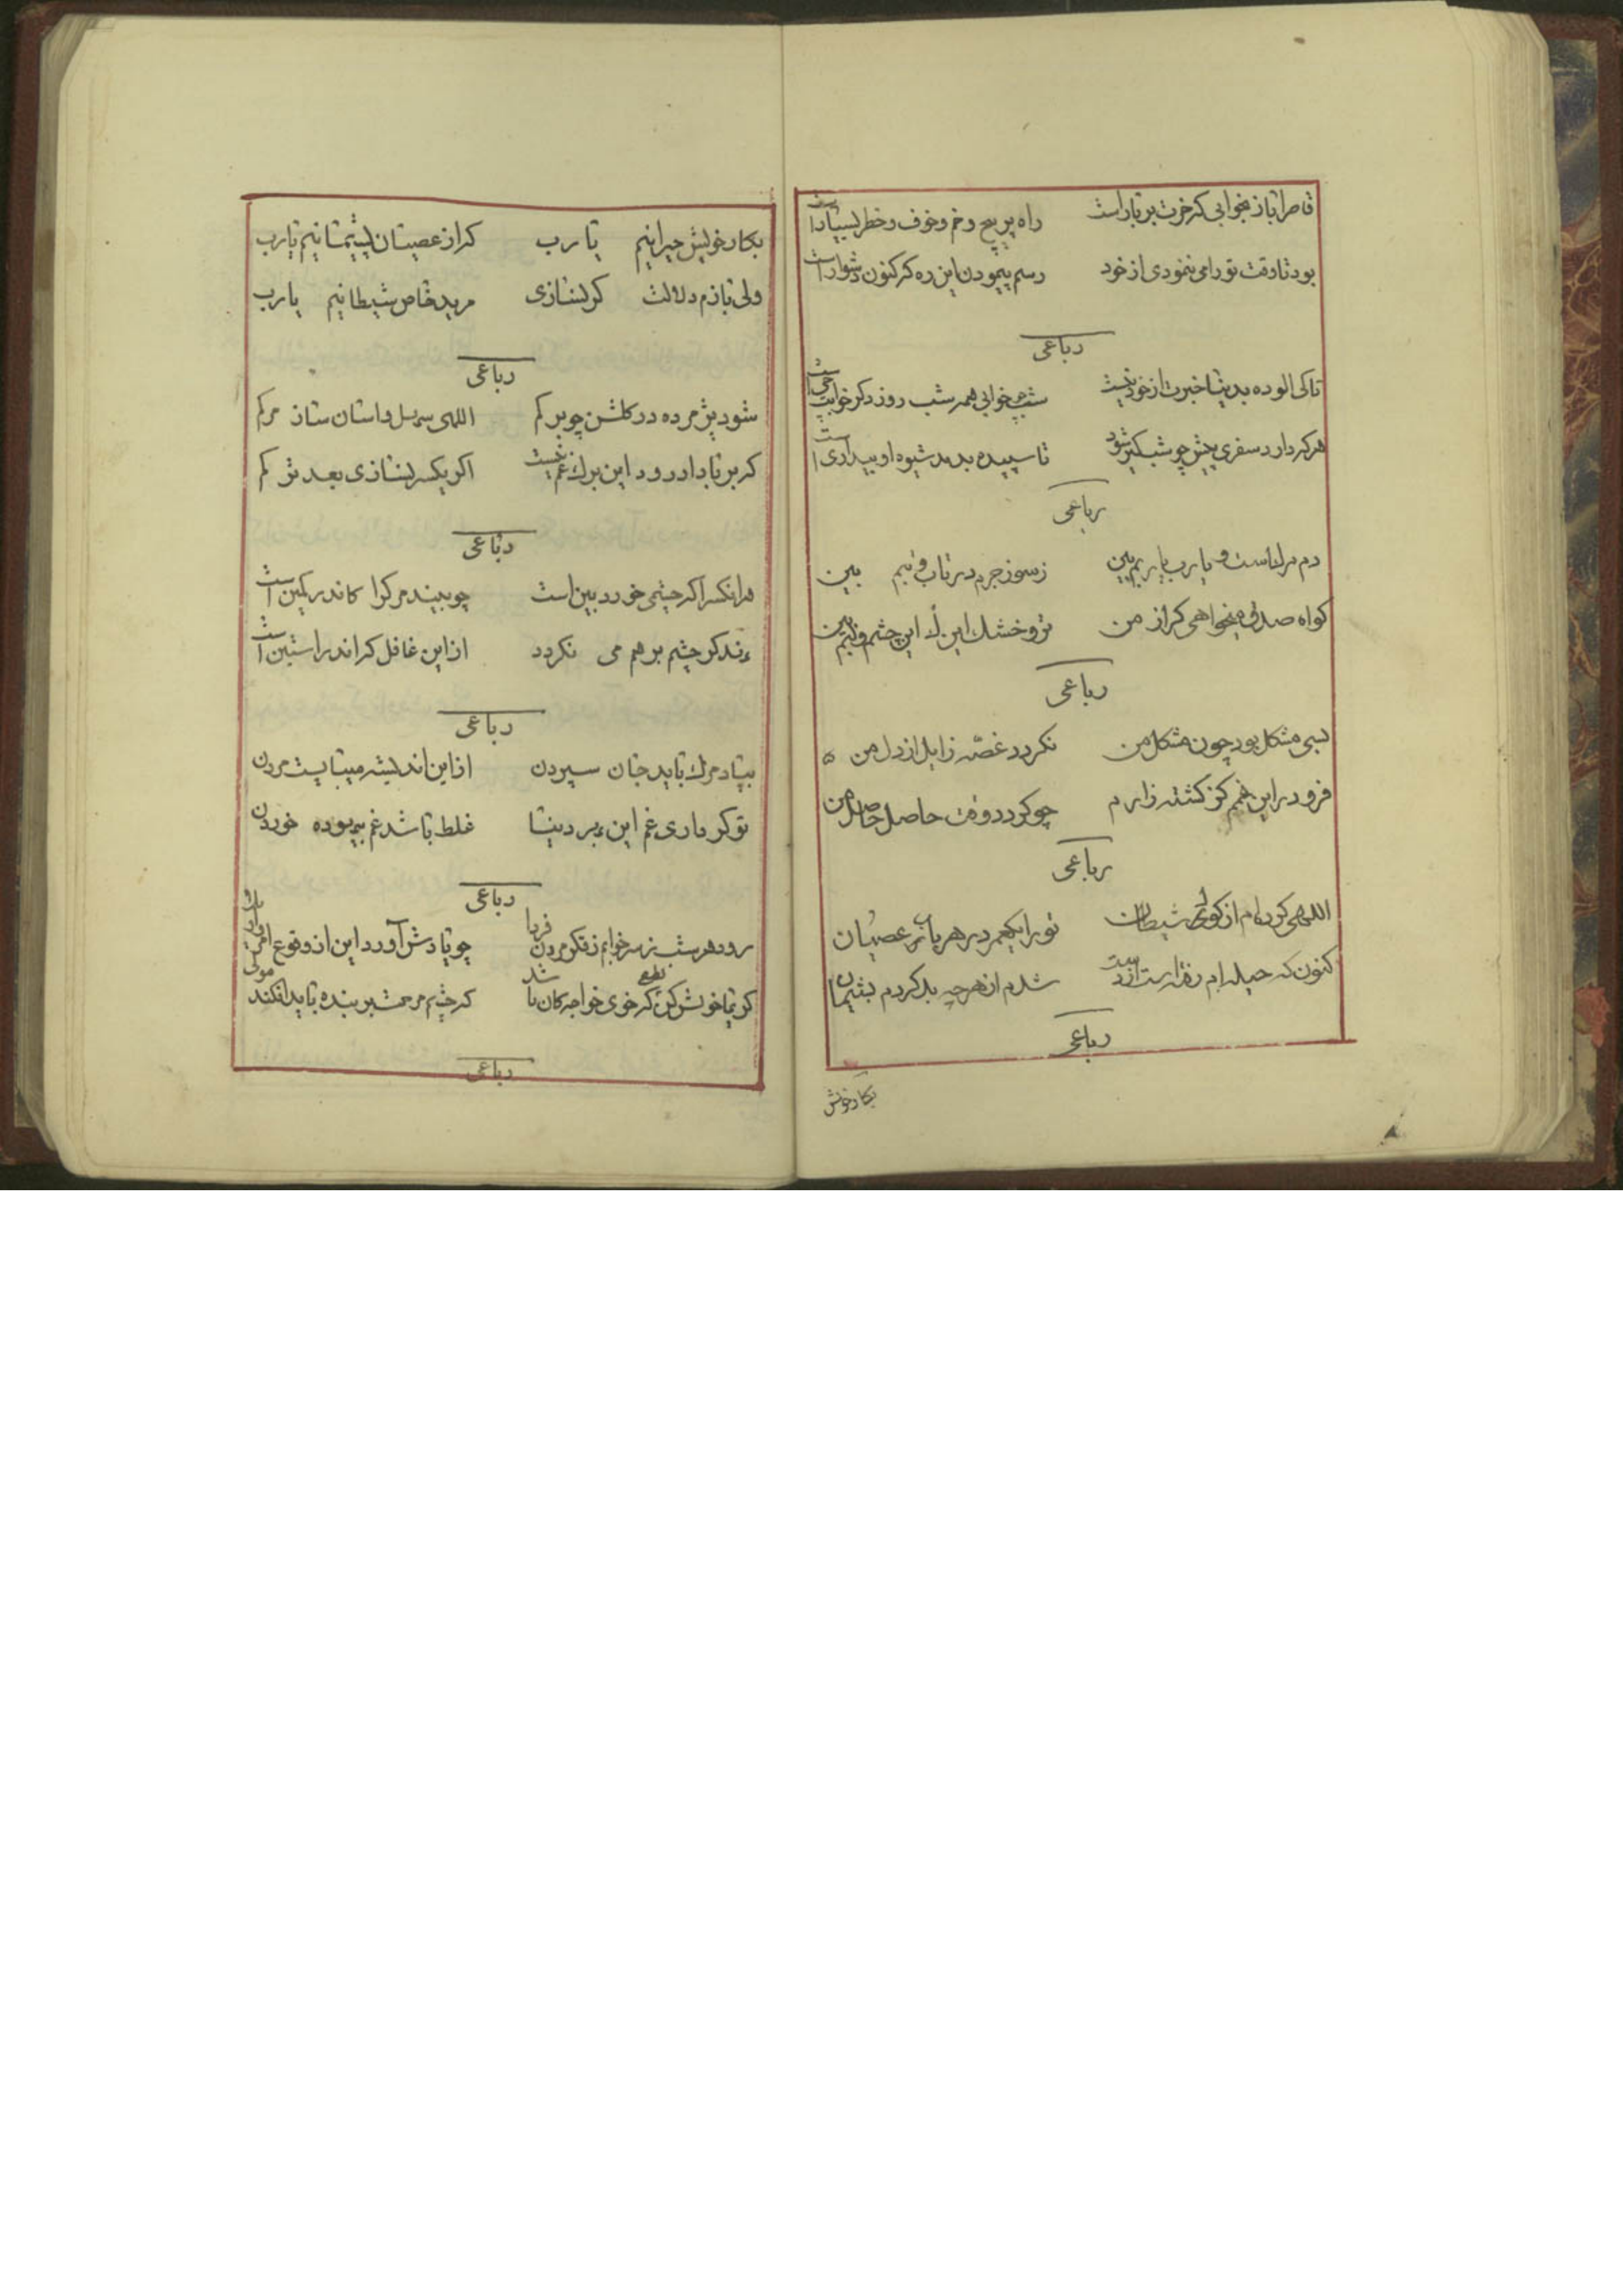 قاصرا باز بخوابی که خرت بر بار است راه پر پیچ و خم و خوف و خطر بسیار است
بود تا وقت تو رامی ننمودی از خود رسم پیمودن این ره که کنون دشوار است
رباعی
تا کی الوده بدنیا خبرت از خود نیست شب بخوابی همه شب روز دگر
هر که دارد سفری پیش چو شبگیر شود تا سپیده بدمد شیوه او بیداری است
رباعی
دم مرگ است و یارب یاربم بین زسوز جرم در تاب و تبم بین
گواه صدق میخواهی گر از من تر و خشک این این چشم و لبم بین
رباعی
بسی مشکل بود چون مشکل من نگردد غصه زایل از دل من
فزود در این غم کز کشته زارم چو گردد وقت حاصل حاصل من
رباعی
اللهی کرده‌ام از کول شیطان تو را یکعمر در هر باب عصیان
کنون که حیله‌ام رفته است از دست شدم از هر چه بد کردم پشیمان
رباعی
بکار خویش
بکار خویش حیرانیم یا رب که از عصیان پشیمانیم یا رب
ولی بازم دلالت گر نسازی مرید خاص شیطانیم یارب
رباعی
شود پژمرده در گلشن چو بر کم اللهی داستان ساز مرگم
که بر باد ار رود این برگ غم نیست اگر یکسر نسازی بعد ترکم
رباعی
هر انکس را که چشمی خورده بین است چو بیند مرگ را کاندر کمین است
زند گر چشم بر هم می نگردد از این غافل که اندر راستین است
رباعی
بیاد مرگ باید جان سپردن از این اندیشه میبایست مردن
تو گر داری غم این بر دنیا غلط باشد غم بیهوده خوردن
رباعی
رود هر شب ز سر خوابم ز فکر مردن فردا چو یادش آورد این از وقوع
که چشم مرحمت بر بنده باید افکند مولی
رباعی